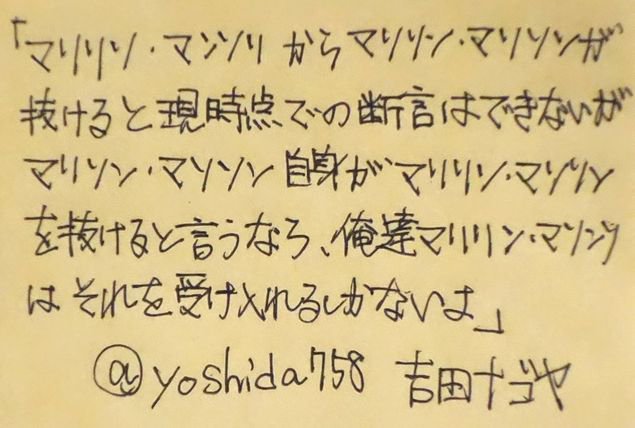 「マリリリソ・マンソリ からマリリン・マリソンが
抜けると現時点での断言はできないが
マリソン・マソソン 自身が マリリソ・マゾリン
を抜けると言うなら、俺達マリリン・マソンリ
はそれを受け入れるしかないよ」
@yoshida758 吉田ナゴヤ